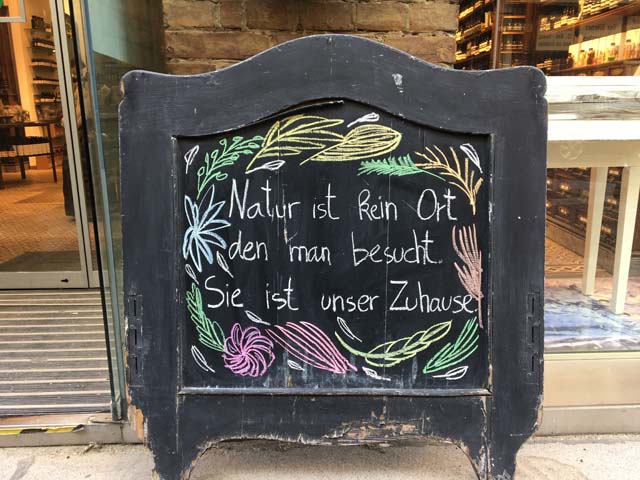 Natur ist kein Ort
den man besucht.
Sie ist unser Zuhause.